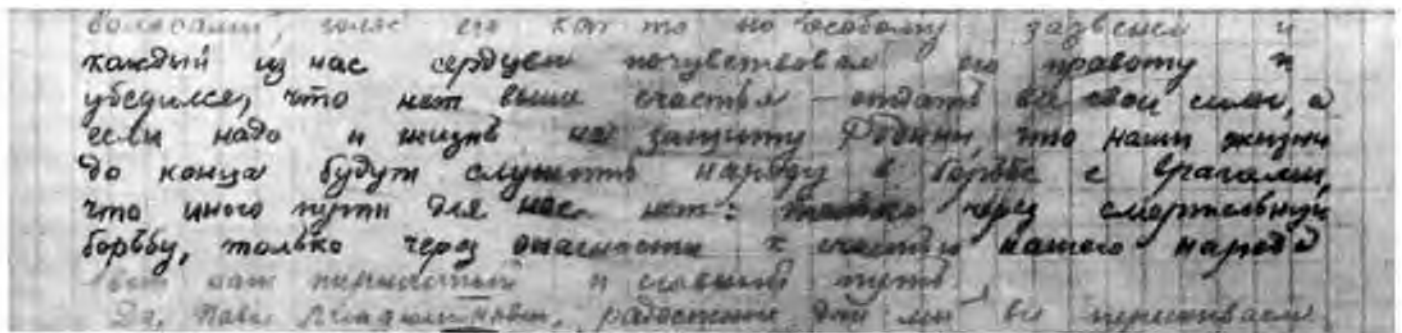 голос его как то по особому зазвенел и
каждый из нас сердцем почувствовал его правоту и
убедился, что нет выше счастья – отдать все свои силы, а
если надо и жизнь на защиту Родины, что наши жизни
до конца будут служить народу в борьбе с врагами,
что иного пути для нас нет: только через смертельную
борьбу, только через опасности к счастью нашего народа
вот наш и славный путь.
Да, Павел радостные дни мы все переживаем